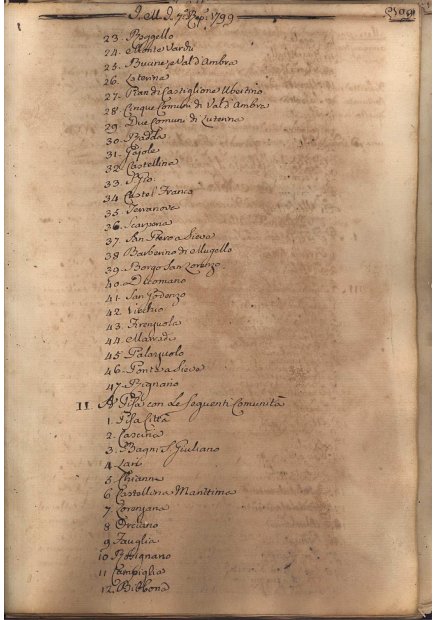 I. M. I. 7. Sep. 1799
23. Reggello
24. Monte Varchi
25. Bucine, e Val d'Ambra
26. Laterina
27. Pian di Castiglione Ubertino
28. Cinque Comuni di Val d'Ambra
29. Due Comuni di Laterina
30. Radda
31. Gajole
32. Castellina
33.
34. Castel Franco
35. Terranova
36. Scarperia
37. San Piero a Sieve
38. Barberino di Mugello
39. Borgo San Lorenzo
40. Dicomano
41. San Godenzo
42. Vicchio
43. Firenzuola
44. Marradi
45. Palazuolo
46. Pont' a Sieve
47. Pignano
II. A Pisa con Le Seguenti Comunità
1. Pisa Città
2. Cascina
3. Bagni S. Giuliano
4. Lari
5. Chianni
6. Castellina Marittima
7. Lorenzana
8. Orciano
9. Fauglia
10. Rosignano
11. Campiglia
12. Bibbona